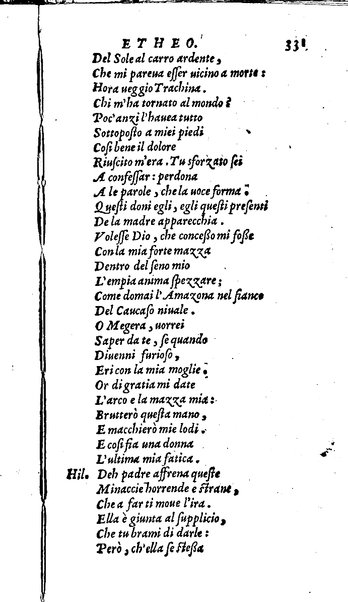 ETHEO. 331
Del Sole al carro ardente,
Che mi pareua esser uicino a morte:
Hora ueggio Trachina.
Chi m'ha tornato al mondo?
Poc'anzi l'hauea tutto
Sottoposto a miei piedi
Cosi bene il dolore
Riuscito m'era. Tu sforzato sei
A confessar: perdona
A le parole, che la uoce forma.
Questi doni egli, egli questi presenti
De la madre apparecchia.
Volesse Dio, che concesso mi fosse
Con la mia forte mazza
Dentro del seno mio
L'empia anima spezzare;
Come domai l'Amazona nel fianco
Del Caucaso niuale.
O Megera, uorrei
Saper da te, se quando
Diuenni furioso,
Eri con la mia moglie.
Or di gratia mi date
L'arco e la mazza mia:
Brutterò questa mano,
E macchierò mie lodi.
E cosi fia una donna
L'ultima mia fatica.
Hil. Deh padre affrena queste
Minaccie horrende e strane,
Che a far ti moue l'ira.
Ella è giunta al supplicio,
Che tu brami di darle:
Però, ch'ella se stessa